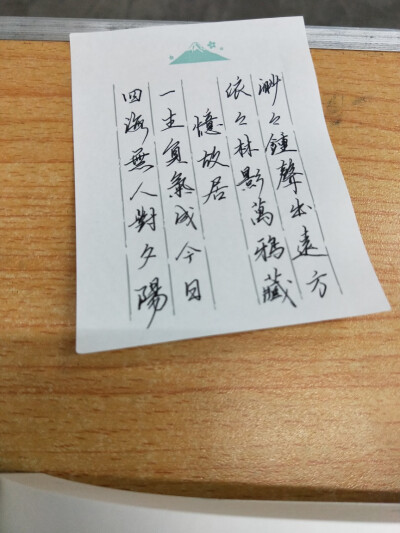 渺々鐘聲出遠方
依々林影萬鴉藏
憶故居
一生負氣成今日
四海無人對夕陽